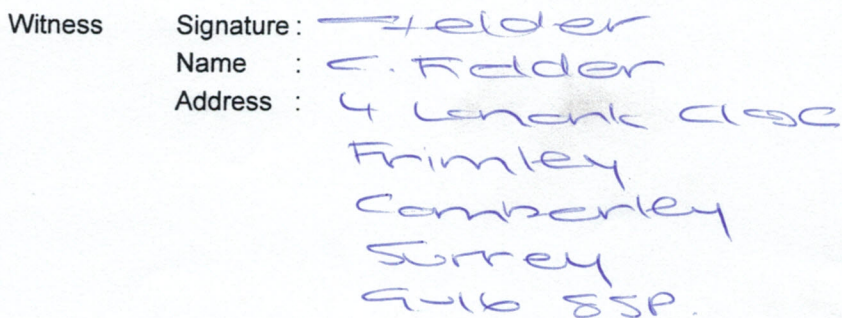 Witness Signature : Felder
Name : C. Felder
Address : 4 Lanark Close
Frimley
Camberley
Surrey
GU16 8SP.